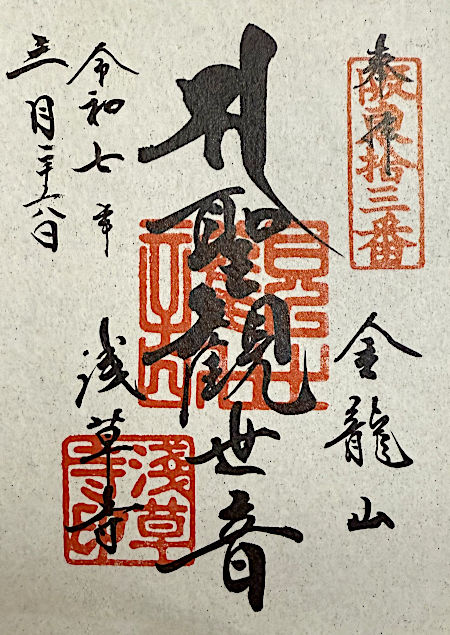 奉拝
坂東拾三番
金龍山
聖観世音
浅草寺
浅草寺印
令和七年
三月二十八日